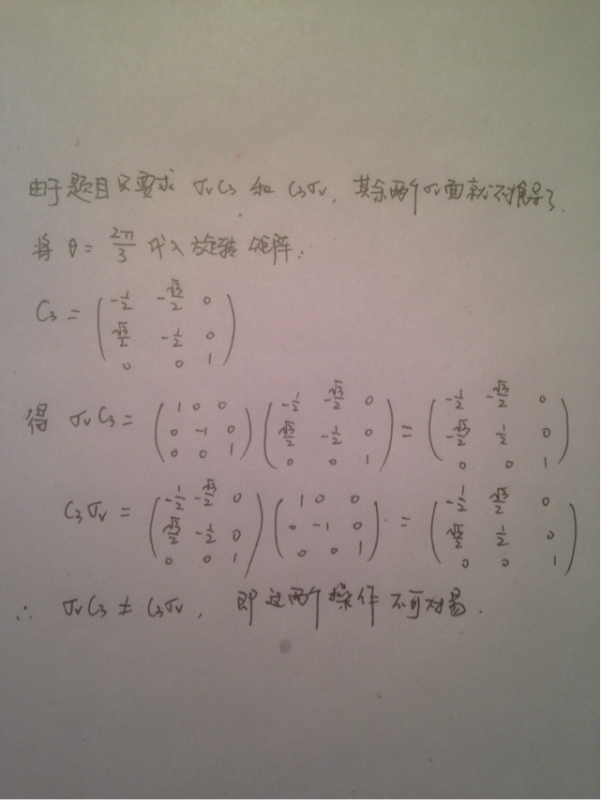 由于题目只要求 σvC3 和 C3σv, 其余两个σv面就不推导了.
将 θ = 2π/3 代入旋转矩阵:
C3 = ( -1/2 -√3/2 0 ; √3/2 -1/2 0 ; 0 0 1 )
得 σvC3 = ( 1 0 0 ; 0 -1 0 ; 0 0 1 ) ( -1/2 -√3/2 0 ; √3/2 -1/2 0 ; 0 0 1 ) = ( -1/2 -√3/2 0 ; -√3/2 1/2 0 ; 0 0 1 )
C3σv = ( -1/2 -√3/2 0 ; √3/2 -1/2 0 ; 0 0 1 ) ( 1 0 0 ; 0 -1 0 ; 0 0 1 ) = ( -1/2 √3/2 0 ; √3/2 1/2 0 ; 0 0 1 )
∴ σvC3 ≠ C3σv, 即这两个操作不可对易.